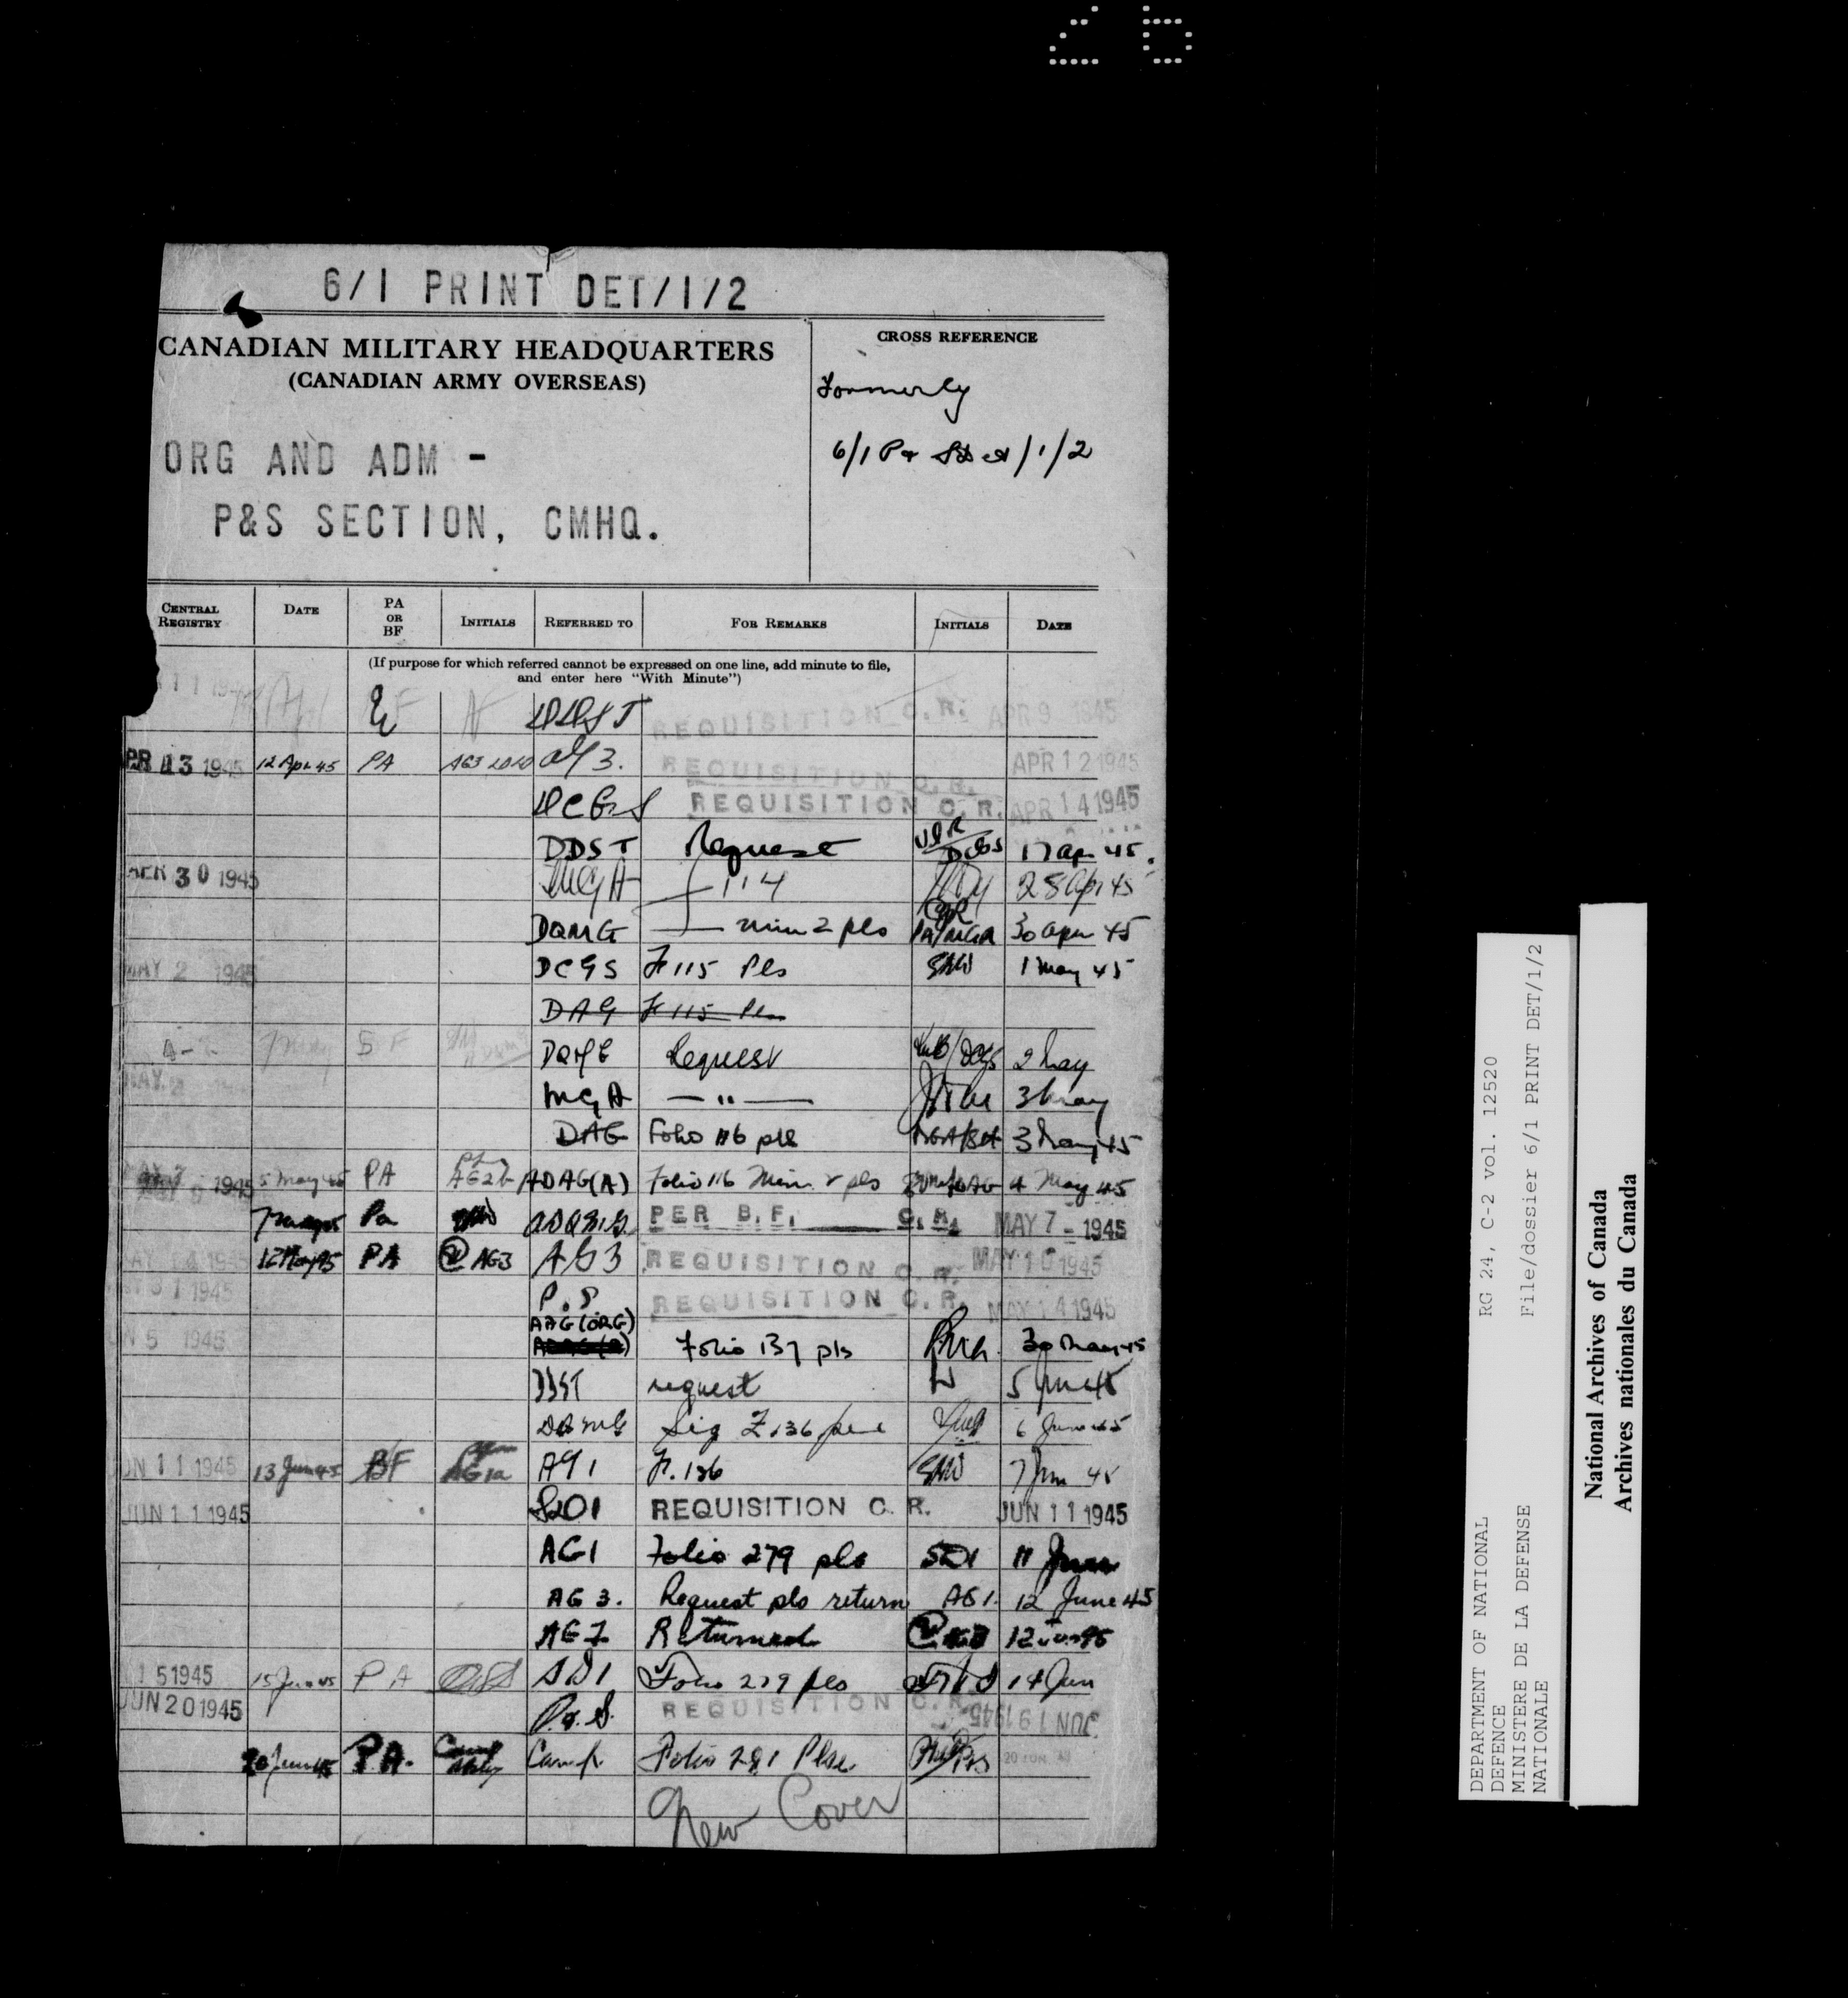 26
6/1 PRINT DET/1/2
CANADIAN MILITARY HEADQUARTERS
(CANADIAN ARMY OVERSEAS)
CROSS REFERENCE
Formerly
6/1 P & S Det/1/2
ORG AND ADM -
P&S SECTION, CMHQ.
CENTRAL REGISTRY DATE PA OR BF INITIALS REFERRED TO FOR REMARKS INITIALS DATE
(If purpose for which referred cannot be expressed on one line, add minute to file,
and enter here "With Minute")
DDST REQUISITION C.R. APR 9 1945
13 1945 12 Apr 45 PA AG3 REQUISITION C.R. APR 12 1945
DCGS REQUISITION C.R. APR 14 1945
DDST Request DCGS 17 Apr 45.
30 1945 MGA 114 28 Apr 45
DQMG min 2 pls PA/MGA 30 Apr 45
MAY 2 1945 DCGS F 115 Pls 1 May 45
DAG F 115 Pls
7 May BF DQMG Request 2 May
MAY MGA — " — 3 May
DAG Folio 116 pls 3 May 45
1945 5 May 45 PA AG2b ADAG(A) Folio 116 Min pls 4 May 45
7 May 45 Pa PER B.F. C.R. MAY 7 - 1945
1945 12 May 45 PA AG3 AG3 REQUISITION C.R. MAY 10 1945
31 1945 P.S REQUISITION C.R. MAY 14 1945
AAG(ORG)
5 1945 Folio 137 pls 30 May 45
DDST request 5 June 45
DQMG F.136 6 June 45
JUN 11 1945 13 Jun 45 BF AG1a AG1 F.136 7 Jun 45
JUN 11 1945 SD1 REQUISITION C.R. JUN 11 1945
AG1 Folio 279 pls SD1 11 June
AG 3. Request pls return AG1. 12 June 45
AG1 Returned 12 Jun 45
15 1945 15 Jun 45 PA SD1 Folio 279 pls 14 Jun
JUN 20 1945 P.&S. REQUISITION C.R. JUN 19 1945
20 Jun 45 P.A. Camp Folio 281 Plse. 20 JUN
New Cover
DEPARTMENT OF NATIONAL RG 24, C-2 vol. 12520
DEFENCE
MINISTERE DE LA DEFENSE File/dossier 6/1 PRINT DET/1/2
NATIONALE
National Archives of Canada
Archives nationales du Canada